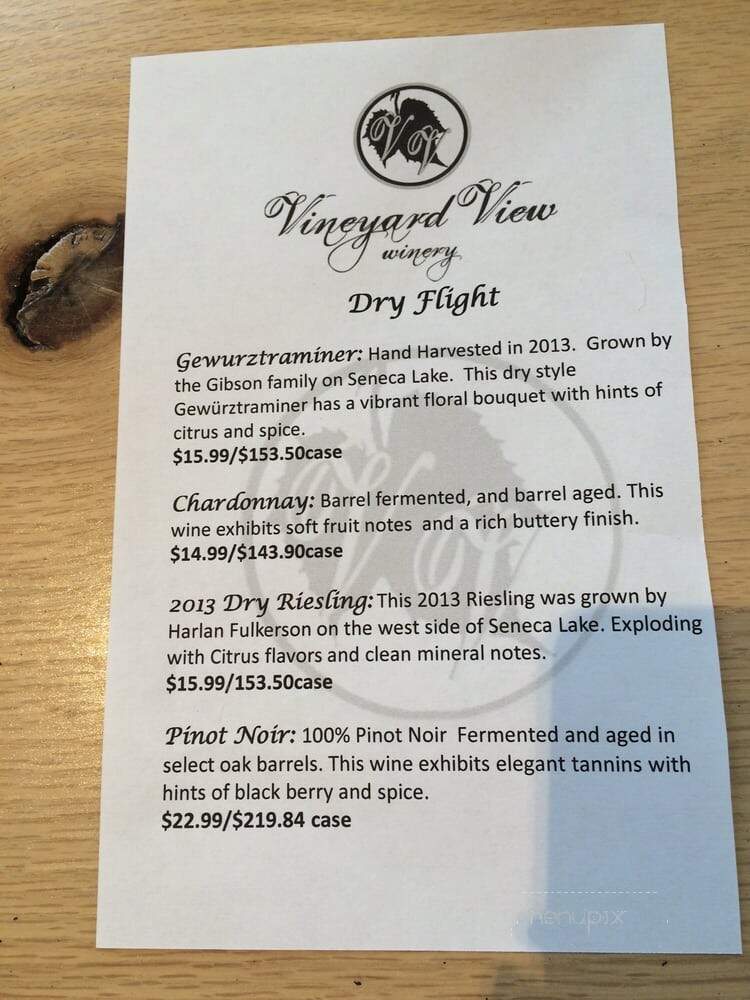 VV
Vineyard View
winery
Dry Flight
Gewurztraminer: Hand Harvested in 2013. Grown by
the Gibson family on Seneca Lake. This dry style
Gewürztraminer has a vibrant floral bouquet with hints of
citrus and spice.
$15.99/$153.50case
Chardonnay: Barrel fermented, and barrel aged. This
wine exhibits soft fruit notes and a rich buttery finish.
$14.99/$143.90case
2013 Dry Riesling: This 2013 Riesling was grown by
Harlan Fulkerson on the west side of Seneca Lake. Exploding
with Citrus flavors and clean mineral notes.
$15.99/153.50case
Pinot Noir: 100% Pinot Noir Fermented and aged in
select oak barrels. This wine exhibits elegant tannins with
hints of black berry and spice.
$22.99/$219.84 case
menupix